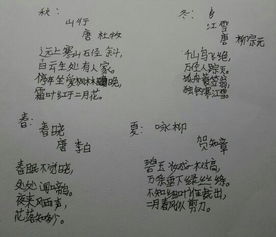 秋:
山行
唐 杜牧
远上寒山石径斜,
白云生处有人家。
停车坐爱枫林晚,
霜叶红于二月花。
冬:
江雪
唐 柳宗元
千山鸟飞绝,
万径人踪灭。
孤舟蓑笠翁,
独钓寒江雪。
春:
春晓
唐 李白
春眠不觉晓,
处处闻啼鸟。
夜来风雨声,
花落知多少。
夏: 咏柳
贺知章
碧玉妆成一树高,
万条垂下绿丝绦。
不知细叶谁裁出,
二月春风似剪刀。